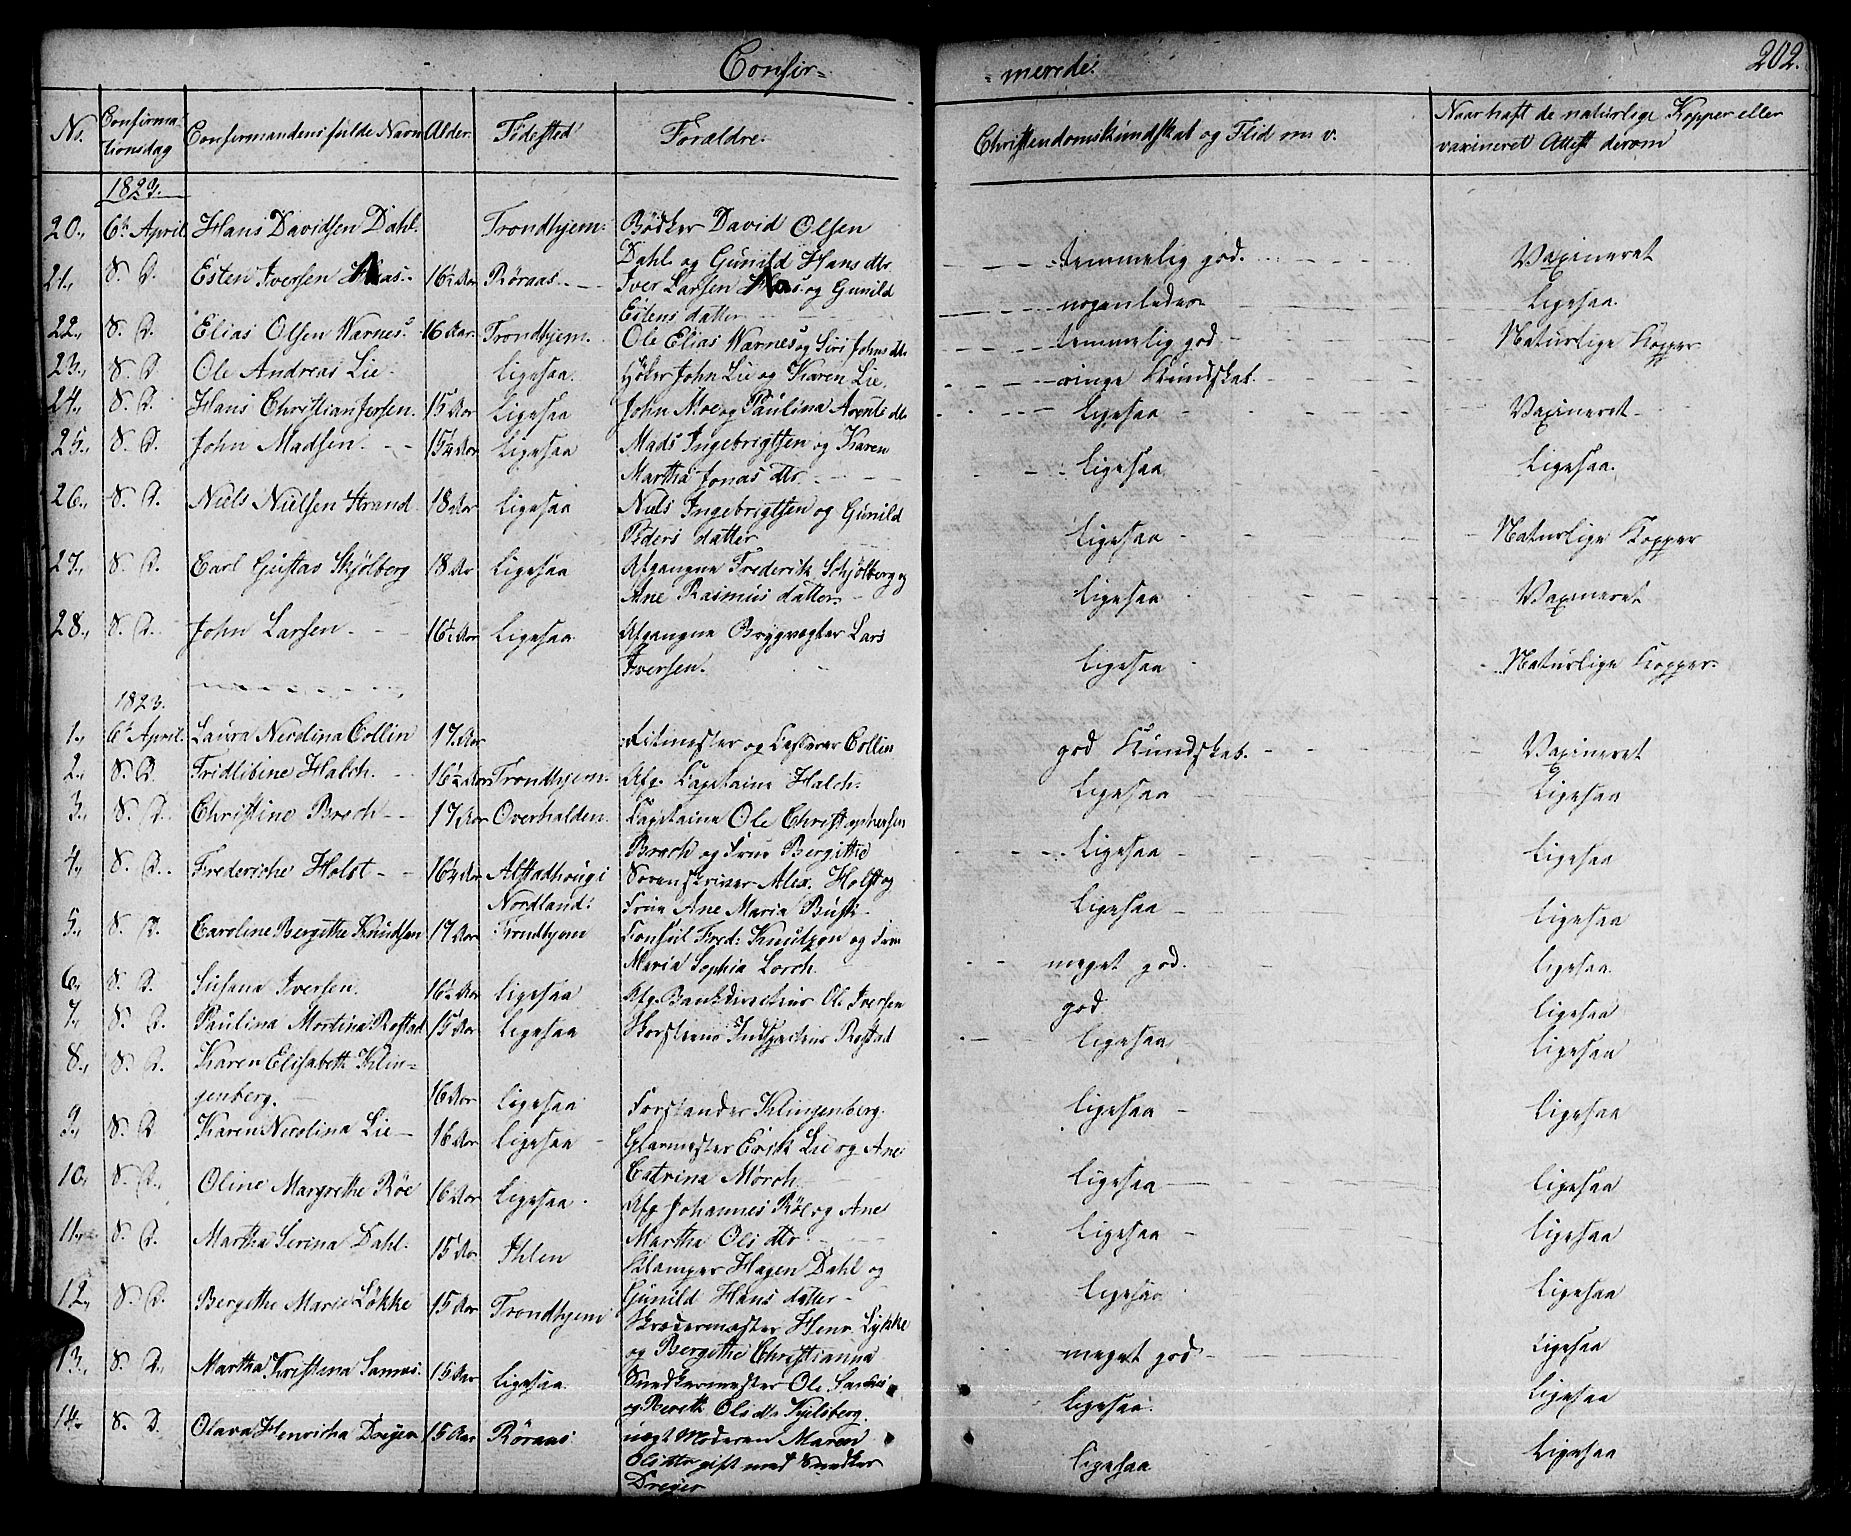 Confir=
=merede.
202.
No. Confirma-tionsdag Confirmandens fulde Navn Alder Fødested Forældre. Christendomskundskab og Flid m. v. Naar haft de naturlige Kopper eller vaxineret Attest derom
1823.
20., 6te April Hans Davidsen Dahl. Trondhjem. Bødker David Olsen
Dahl og Gunild Hans dtr temmelig god. Vaxineret
21., S. D. Esten Iversen Aas. 16½ Aar Røraas. Iver Larsen Aas og Gunild
Estens datter nogenledes Ligesaa.
22., S. D. Elias Olsen Warnes. 16 Aar. Trondhjem. Ole Elias Warnes og Siri Johns dtr temmelig god Naturlige Kopper
23., S. D. Ole Andreas Lie. Ligesaa. Høker John Lie og Karen Lie. ringe Kundskab.
24., S. D. Hans Christian Jersen. 15 Aar Ligesaa John Moe og Paulina Arents dtr Ligesaa Vaxineret
25., S. D. John Madsen. 15½ Aar Ligesaa Mads Ingebrigtsen og Karen
Martha Jonas dtr Ligesaa Ligesaa.
26., S. D. Niels Nielsen Strand 18 Aar Ligesaa Niels Ingebrigtsen og Gunild
Peders datter Ligesaa Naturlige Kopper
27., S. D. Carl Gustav Skjølberg 18 Ar Ligesaa Afgangne Frederik Schjölberg og
Ane Rasmus datter. Ligesaa Vaxineret
28., S. D. John Larsen. 16½ Aar Ligesaa Afgangne Brygvægter Lars
Iversen. Ligesaa Naturlige Kopper
1823.
1., 6te April. Laura Nicolina Collin 17 Aar Ritmester og Casserer Collin god Kundskab. Vaxineret
2., S. D. Fridlibine Halch. 16½ Aar Trondhjem. Afg. Capitaine Halch. Ligesaa Ligesaa
3., S. D. Christine Broch 17 Aar Overhalden. Capitaine Ole Christophersen
Broch og Frue Bergithe Ligesaa Ligesaa
4., S. D. Frederiche Holst 16½ Aar Alstadhoug i Sorenskriver Alex. Holst og
Nordland: Frue Ane Maria Busk Ligesaa Ligesaa
5., S. D. Caroline Bergithe Knudsen 17 Aar Trondhjem Consul Fred: Knutzon og Frue
Maria Sophia Lorch. meget god. Ligesaa.
6., S. D. Susana Iversen. 16½ Aar Ligesaa Afg. Bankdirecteur Ole Iversen god Ligesaa
7., S. D. Paulina Martina Rostad 15 Aar Ligesaa Skorsteens Inspecteur Rostad Ligesaa Ligesaa
8., S. D. Karen Elisabeth Klin=
genberg. 16 Aar Ligesaa Forstander Klingenberg. Ligesaa Ligesaa
9., S. D. Karen Nicolina Lie 16 Aar Ligesaa Glarmester Erik Lie og Ane
Catrina Mørch. Ligesaa Ligesaa
10., S. D., Oline Margrethe Røe 16 Aar Ligesaa. Afg. Johannes Røe og Ane
Martha Ols dtr. Ligesaa Ligesaa
11., S. D. Martha Serina Dahl. 15 Aar Ihlen Klamper Hagen Dahl og
Gunild Hans datter Ligesaa Ligesaa
12., S. D. Bergethe Marie Løkke 15 Aar Trondhjem Skrædermester Henr. Lykke
og Bergethe Christianna meget god Ligesaa
13., S. D., Martha Kristena Sannes. 15 Aar Ligesaa. Snedkermester Ole Sannes
og Bereth Ols dtr Kjelsberg. Ligesaa. Ligesaa
14. S. D. Olava Henricha Dreyer 15 Aar Røraas uægt Moderen Maren
Ols dtr gift med Snedker Ligesaa Ligesaa
Dreyer